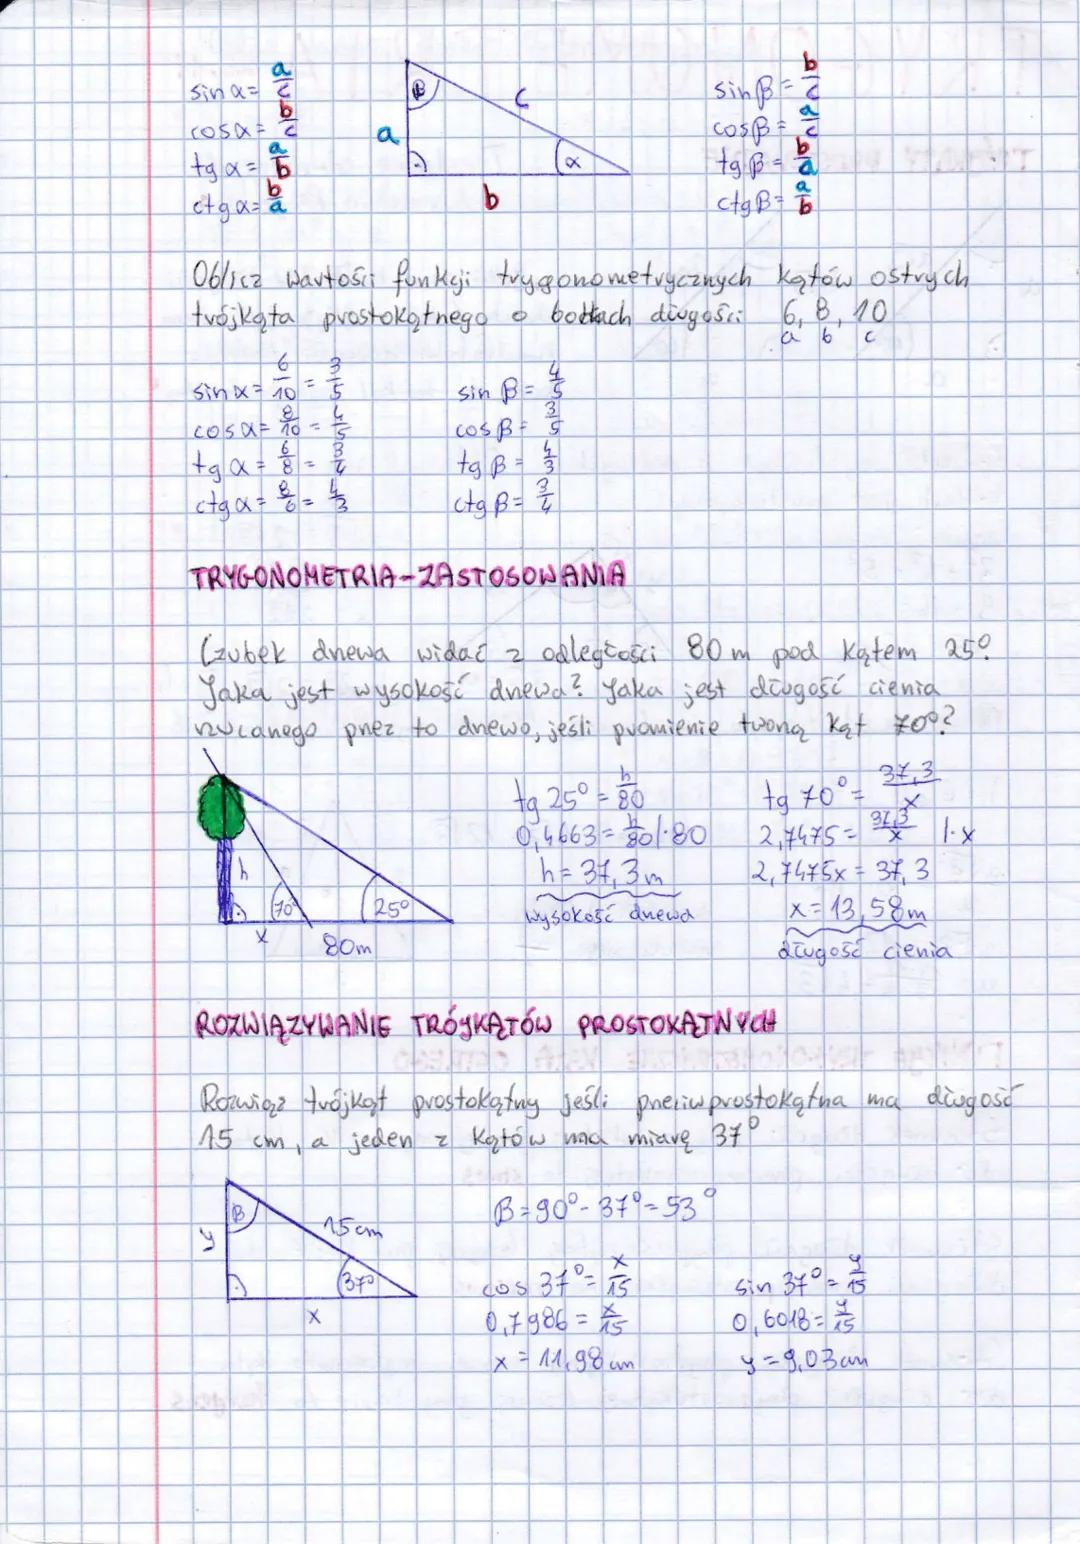 sin α = a/c
cos α = b/c
tg α = a/b
ctg α = b/a
β
c
a
α
b
sin β = b/c
cos β = a/c
tg β = b/a
ctg β = a/b
Oblicz wartości funkcji trygonometrycznych kątów ostrych
trójkąta prostokątnego o bokach długości: 6, 8, 10
a b c
sin α = 6/10 = 3/5
cos α = 8/10 = 4/5
tg α = 6/8 = 3/4
ctg α = 8/6 = 4/3
sin β = 4/5
cos β = 3/5
tg β = 4/3
ctg β = 3/4
TRYGONOMETRIA-ZASTOSOWANIA
Czubek drzewa widać z odległości 80 m pod kątem 25°.
Jaka jest wysokość drzewa? Jaka jest długość cienia
rzucanego przez to drzewo, jeśli promienie tworzą kąt 70°?
h
70°
25°
x
80m
tg 25° = h/80
0,4663 = h/80 /·80
h = 37,3 m
wysokość drzewa
tg 70° = 37,3/x
2,7475 = 37,3/x |·x
2,7475x = 37,3
x = 13,58m
długość cienia
ROZWIĄZYWANIE TRÓJKĄTÓW PROSTOKĄTNYCH
Rozwiąż trójkąt prostokątny jeśli przeciwprostokątna ma długość
15 cm, a jeden z kątów ma miarę 37°
β
15 cm
y
37°
x
β = 90° - 37° = 53°
cos 37° = x/15
0,7986 = x/15
x = 11,98 cm
sin 37° = y/15
0,6018 = y/15
y = 9,03 cm